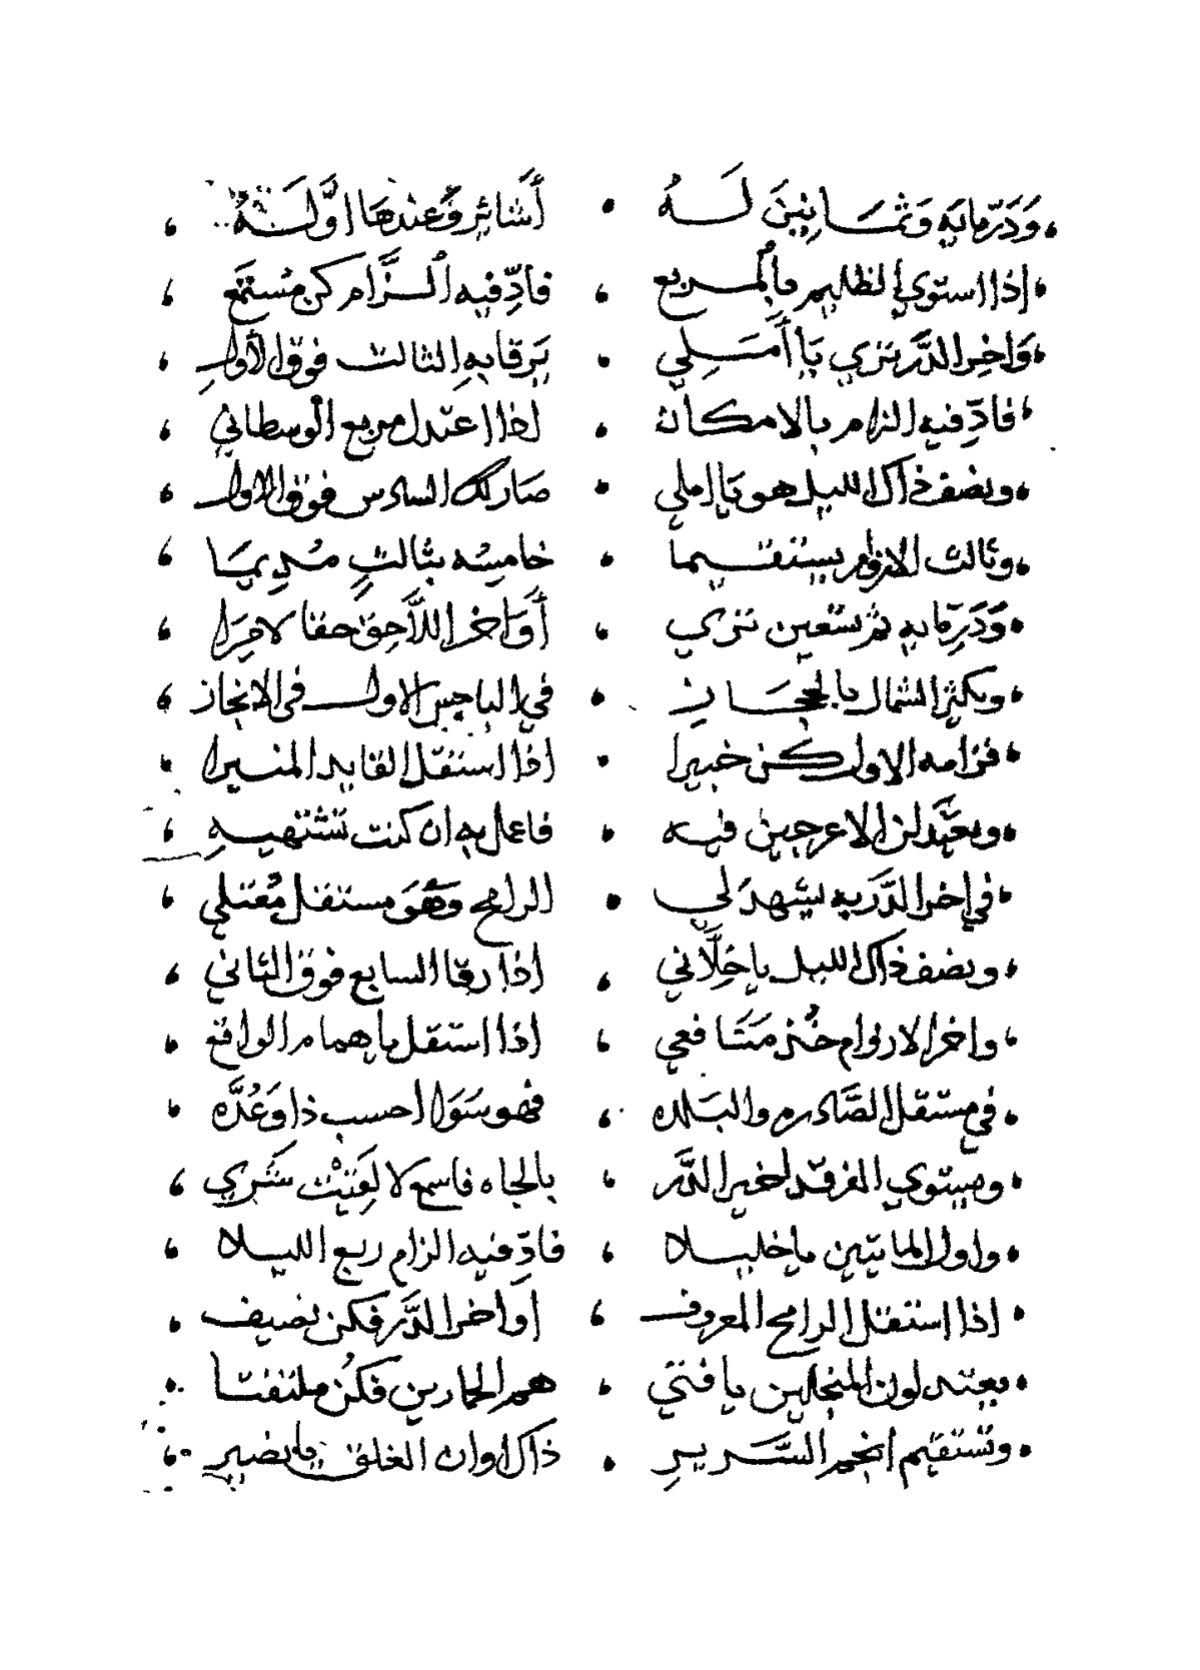 وَدَرّمايه وَثمَانِينَ لَهُ • أَشائِر وعندهَا اوَّلَهُ
إذا استوي الظليم بالمربع ، فادِّ فيه الزَّام كن مُستمَع
وَاخِر الدَّر تري يَا أَمَلِي • يَرقابهِ الثالث فوق الأولِ
فادِّ فيه الزام بالامكان ، اذا اعتدل مربع الوسطاني
ونصف ذاك الليل هو يَا املي • صار لك السادس فوق الاول
وثالث الازوام يستقيما • خامسُه بثالثٍ مُدِيمَا
وَدَرِّمايه ثم تسعين تري ، أَوَاخر اللاَّحِق حقا لا مِرَا
ويكثر الشمال بالحجَازِ • في الباحِس الاول في الانجاز
فزامه الاول كن خبيرا • اذا استقل القايد المنيرا
ويعتَدلن الاعرجين فيه • فاعمل به ان كنت تشتهيهِ
في اخر الدَّر به يشهدَ لي • الرامح وَهُوَ مستقل مُعتلي
ونصف ذاك الليل يا خِلَّاني ، اذا رقا السابع فوق الثاني
واخر الازوام خُذ مَنَافعي ، اذا استقل يا همام الواقع
في مستقل الصَّادم والبَلده ، فهو سَوَا احسب ذا وَعُدَّه
ومستوي الفرقد اخير الدَّر • بالجاه فاسمع لا لقيتْ شَرِي
واول المايتين يا خليلا ، فادِّ فيه الزام ربع الليلا
اذا استقل الرامح المعروف ، أواخر الدَّر فكن نصيف
يعتدلون المنجلين يا فتي • هم الحمارين فكُن ملتفتا
وتستقيم انجم السَّريرِ • ذاك اوان الغلق يا بصير